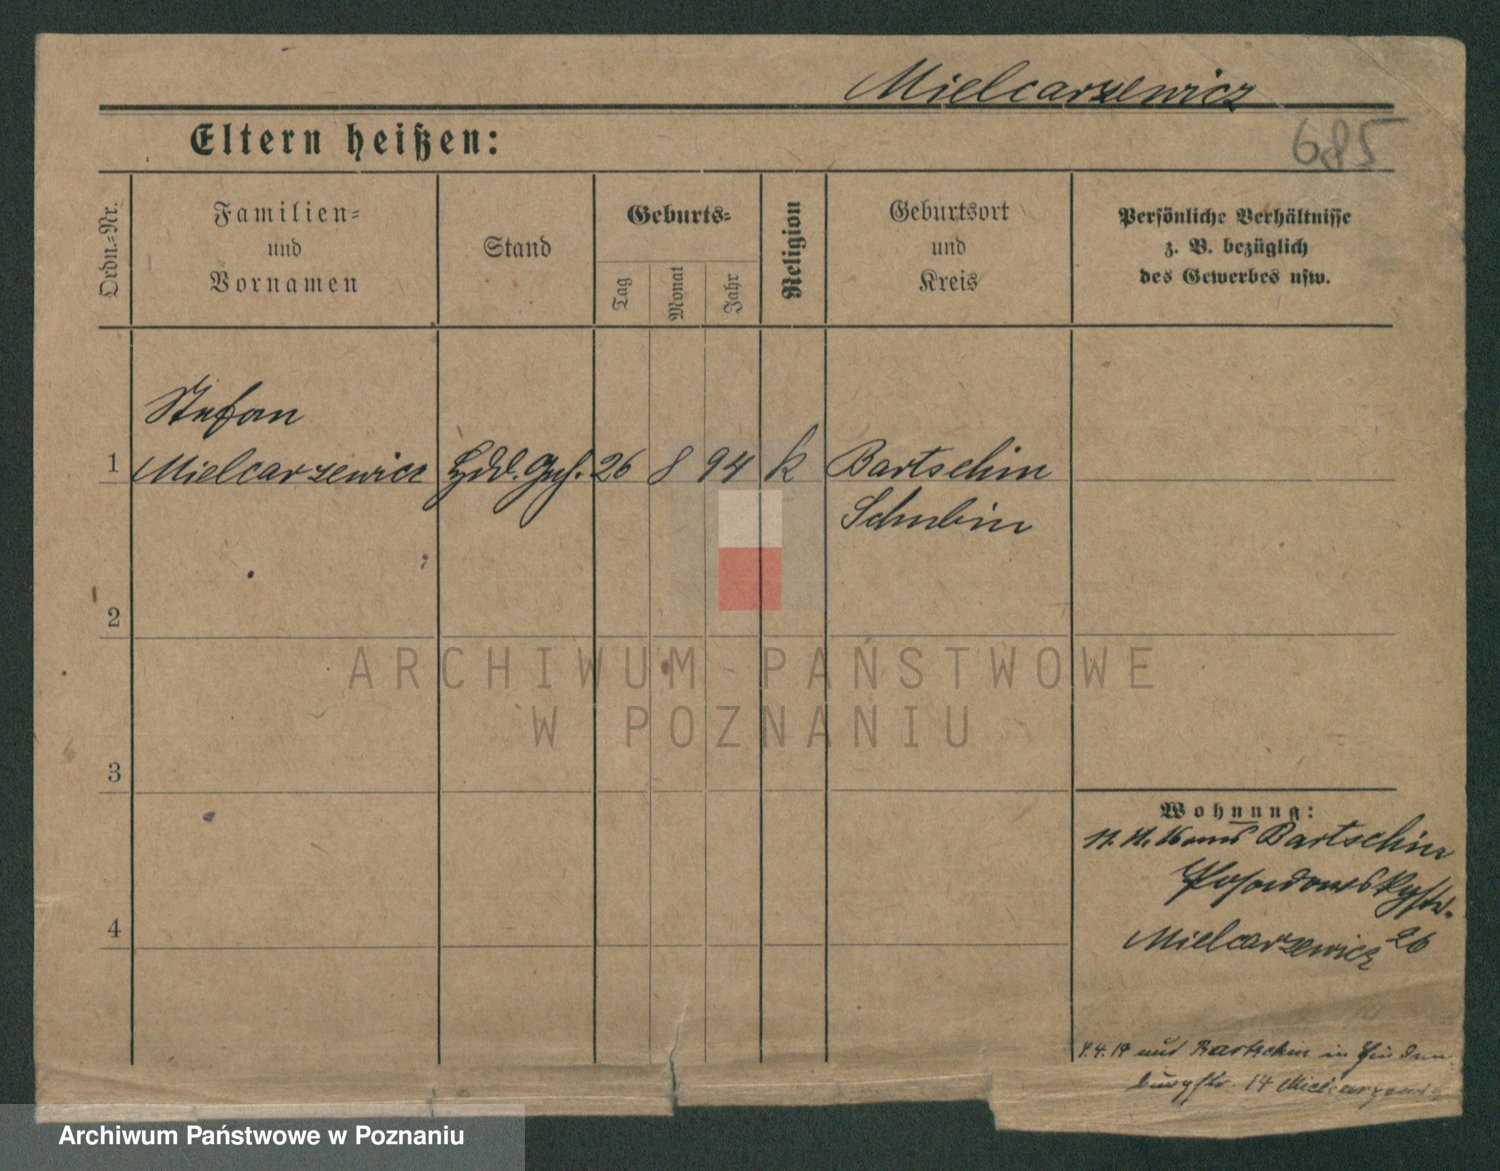 Mielcarzewicz
685
Eltern heißen:
Ordn.-Nr.
Familien-
und
Vornamen
Stand
Geburts-
Tag
Monat
Jahr
Religion
Geburtsort
und
Kreis
Persönliche Verhältnisse
z. B. bezüglich
des Gewerbes usw.
Stefan
1 Mielcarzewicz Hdl. Geh. 26 8 94 k Bartschin
Schubin
2
3
4
Wohnung:
Bartschin
Posadowskystr.
Mielcarzewicz 26
4.19 aus Bartschin in Hinden
burgstr. 14
ARCHIWUM PAŃSTWOWE
W POZNANIU
Archiwum Państwowe w Poznaniu